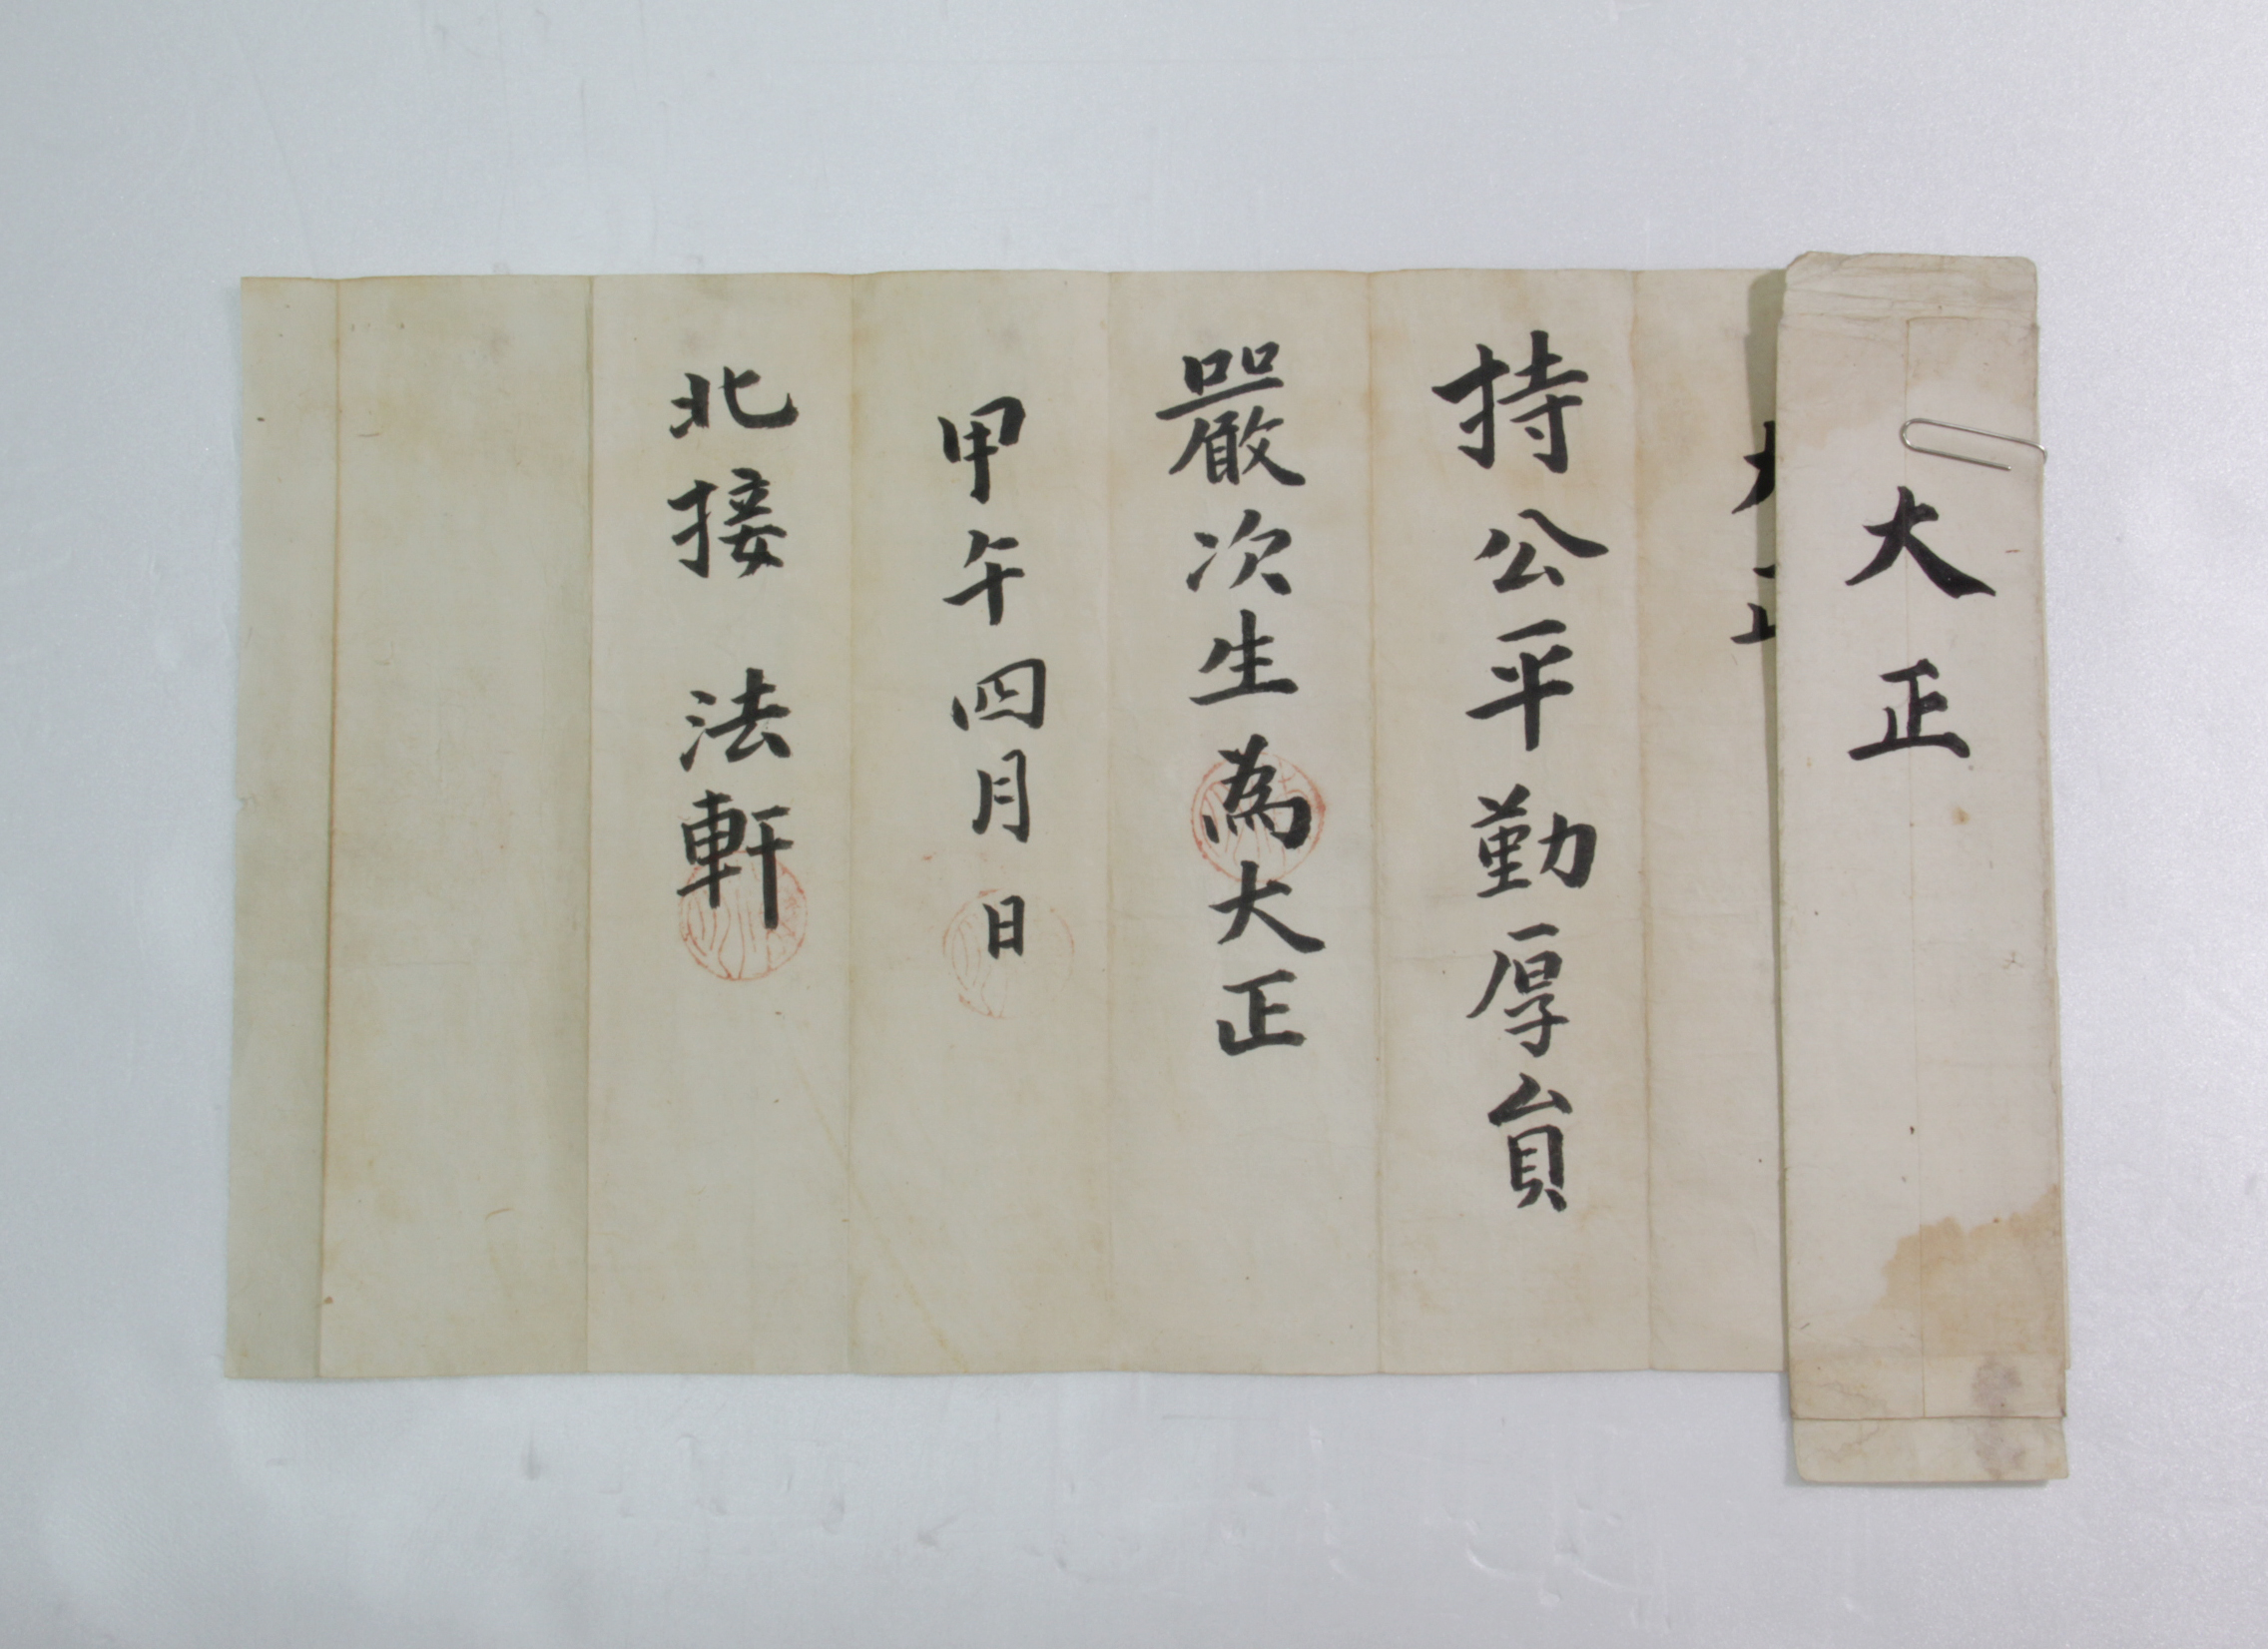 大正
大正
持公平勤厚員
嚴次生為大正
甲午四月 日
北接 法軒